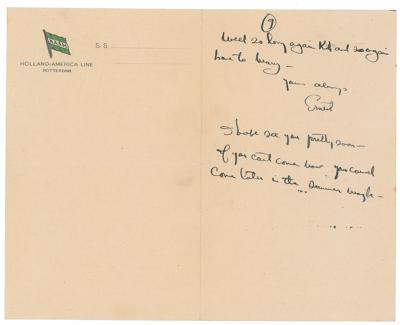 N.A.S.M.
S. S.
HOLLAND-AMERICA LINE
ROTTERDAM.
(9)
Well so long again and so again
to
Yours always
Ernest
I hope see you pretty soon —
If you cant come now you could
Come later in the summer maybe —